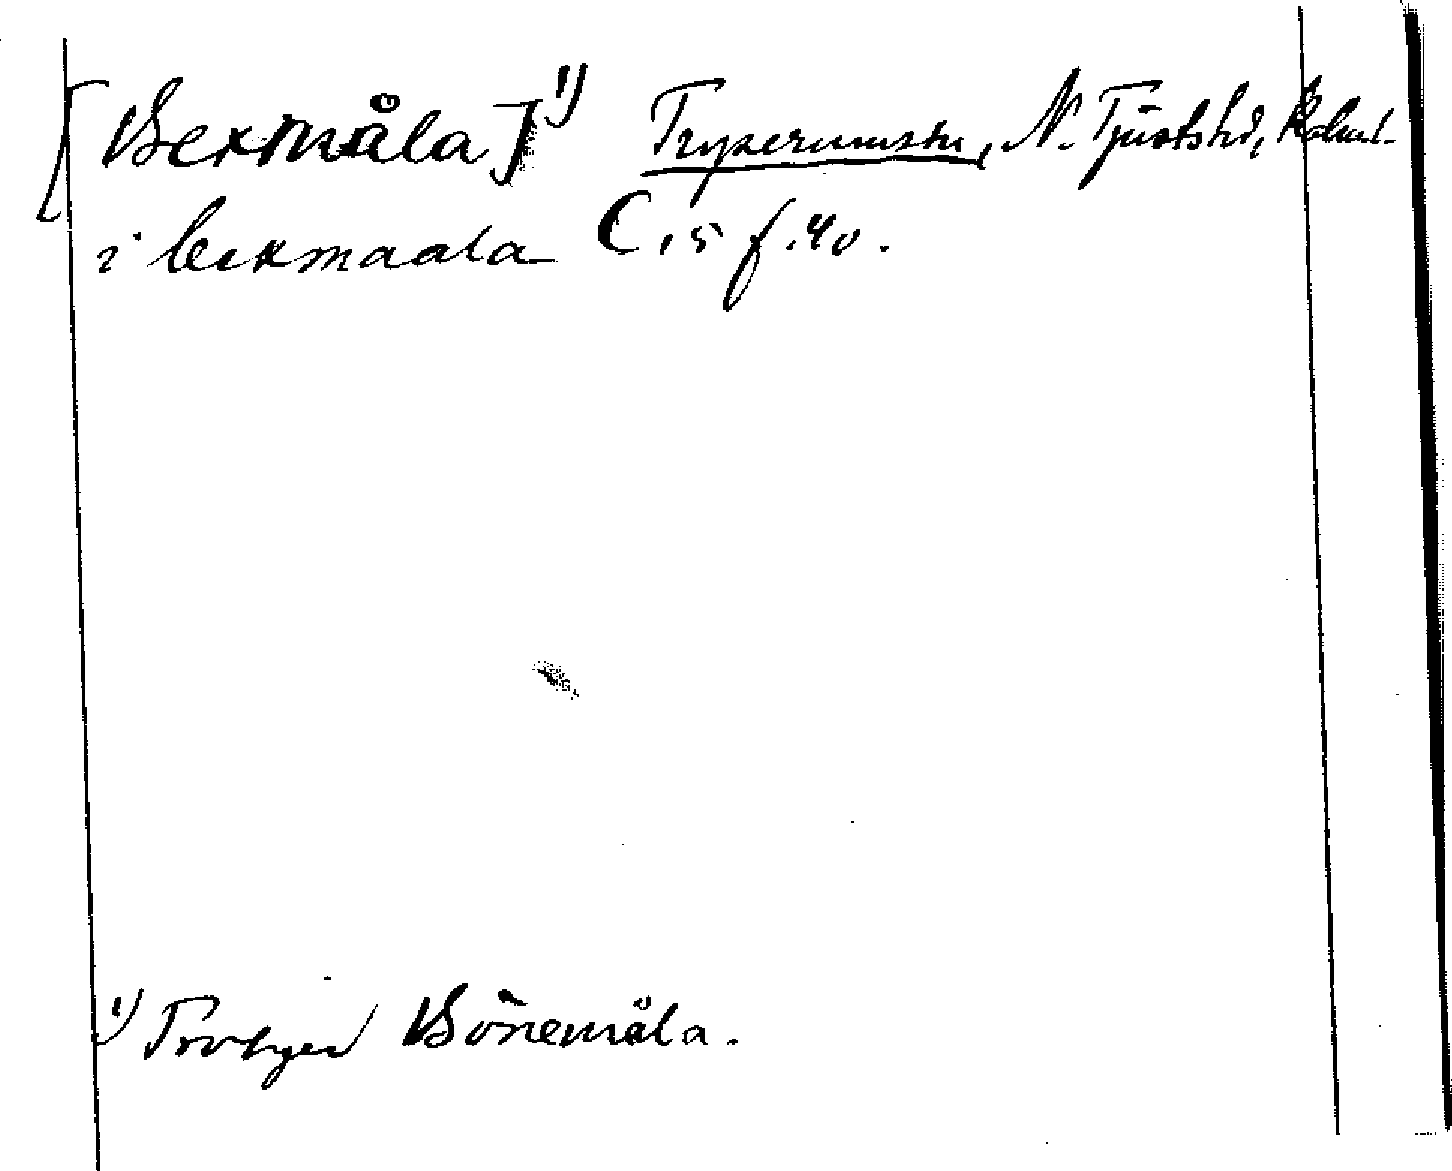 [Bexmåla]¹⁾ Tryserums sn, N. Tjusts hd, Kalm. l.
i bexmaala C 15 f. 40.
¹⁾ Troligen Bönemåla.